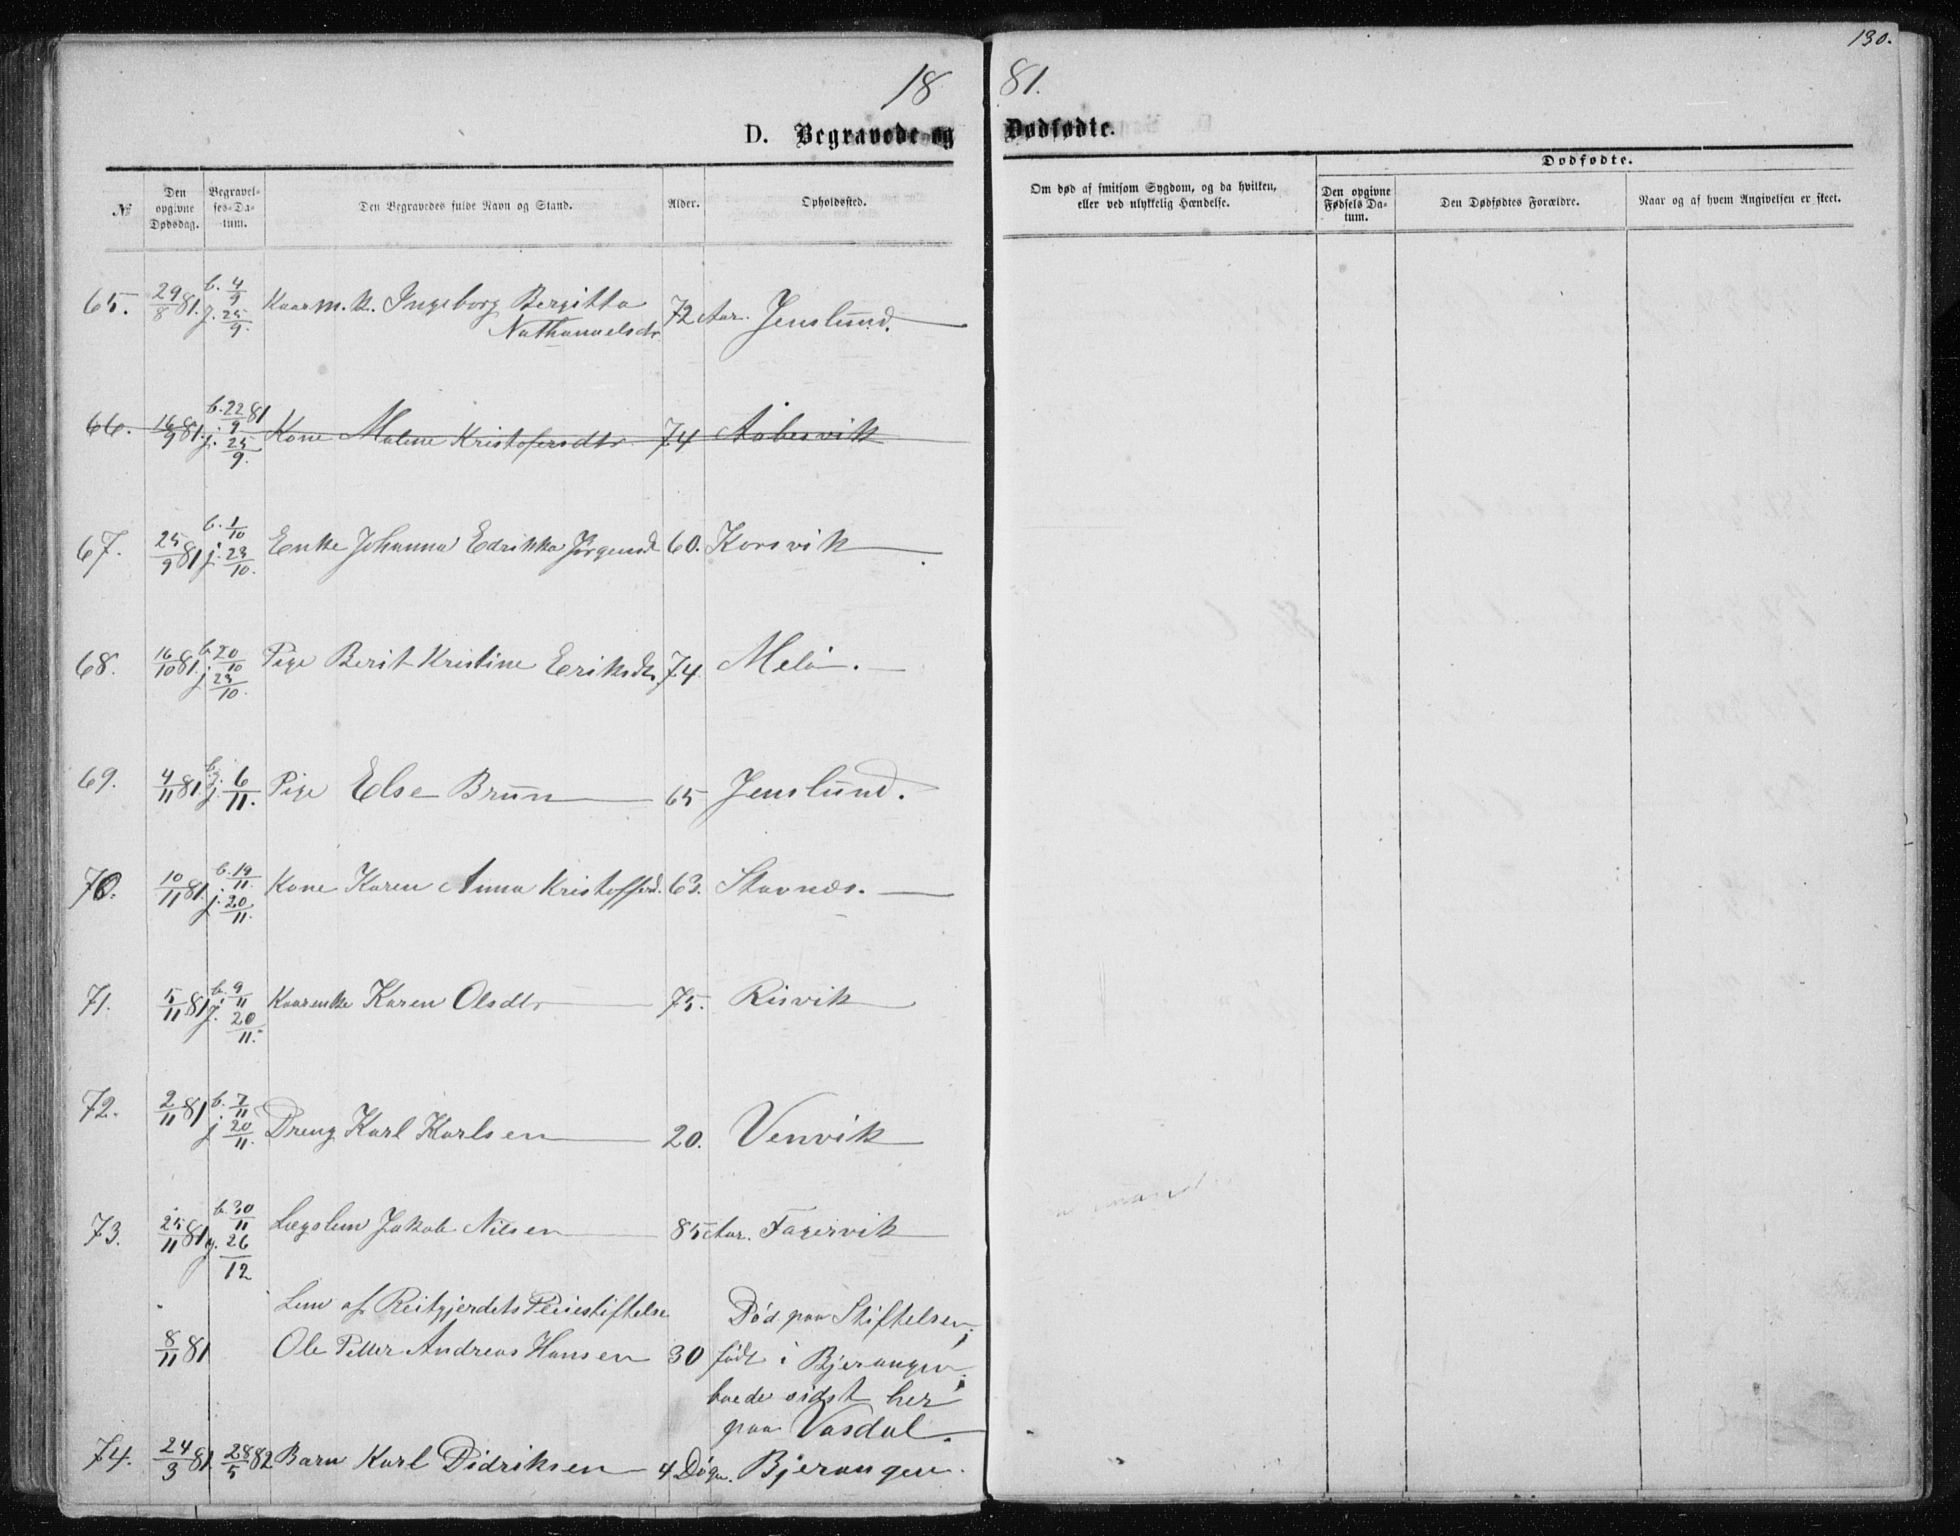 130.
18 81.
D. Begravede og Dødfødte.
№
Den opgivne Dødsdag.
Begravelses-Datum.
Den Begravedes fulde Navn og Stand.
Alder.
Opholdssted.
Om død af smitsom Sygdom, og da hvilken, eller ved ulykkelig Hændelse.
Dødfødte.
Den opgivne Fødsels Datum.
Den Dødfødtes Forældre.
Naar og af hvem Angivelsen er skeet.
65. 29/8 81. b. 4/9 j. 25/9. Kaarm. k. Ingeborg Bergitta 72 Aar. Jenslund.
Nathanaelsdr.
66. 16/9 81. b. 22/9 81 j. 25/9. Kone Malene Kristofersdtr 74 Aabesvik
67. 25/9 81 b. 1/10 j. 23/10. Enke Johanna Edrikka Jørgensd 60. Korsvik
68. 16/10 81. b. 20/10 j. 23/10. Pige Berit Kristine Eriksdtr. 74. Melø.
69. 4/11 81. b. j. 6/11. Pige Else Brun 65 Jenslund.
70. 10/11 81. b. 19/11. j. 20/11. Kone Karen Anna Kristoffersd. 63. Stavnæs.
71. 5/11 81 b. 9/11 j. 20/11. Kaarenke Karen Olsdtr 75. Risvik
72. 2/11 81 b. 7/11 j. 20/11. Dreng Karl Karlsen 20. Venvik
73. 25/11 81 b. 30/11 j. 26/12 Lægslem Jakob Nilsen 85 Aar. Fagervik
Lem af Reitgjerdets Pleiestiftelse Død paa Stiftelsen;
8/11 81 Ole Petter Andreas Hansen 30 født i Bjerangen;
boede sidst her
paa Vasdal.
74. 24/3 81. 28/5 82 Barn Karl Didriksen 4 Døgn. Bjerangen.